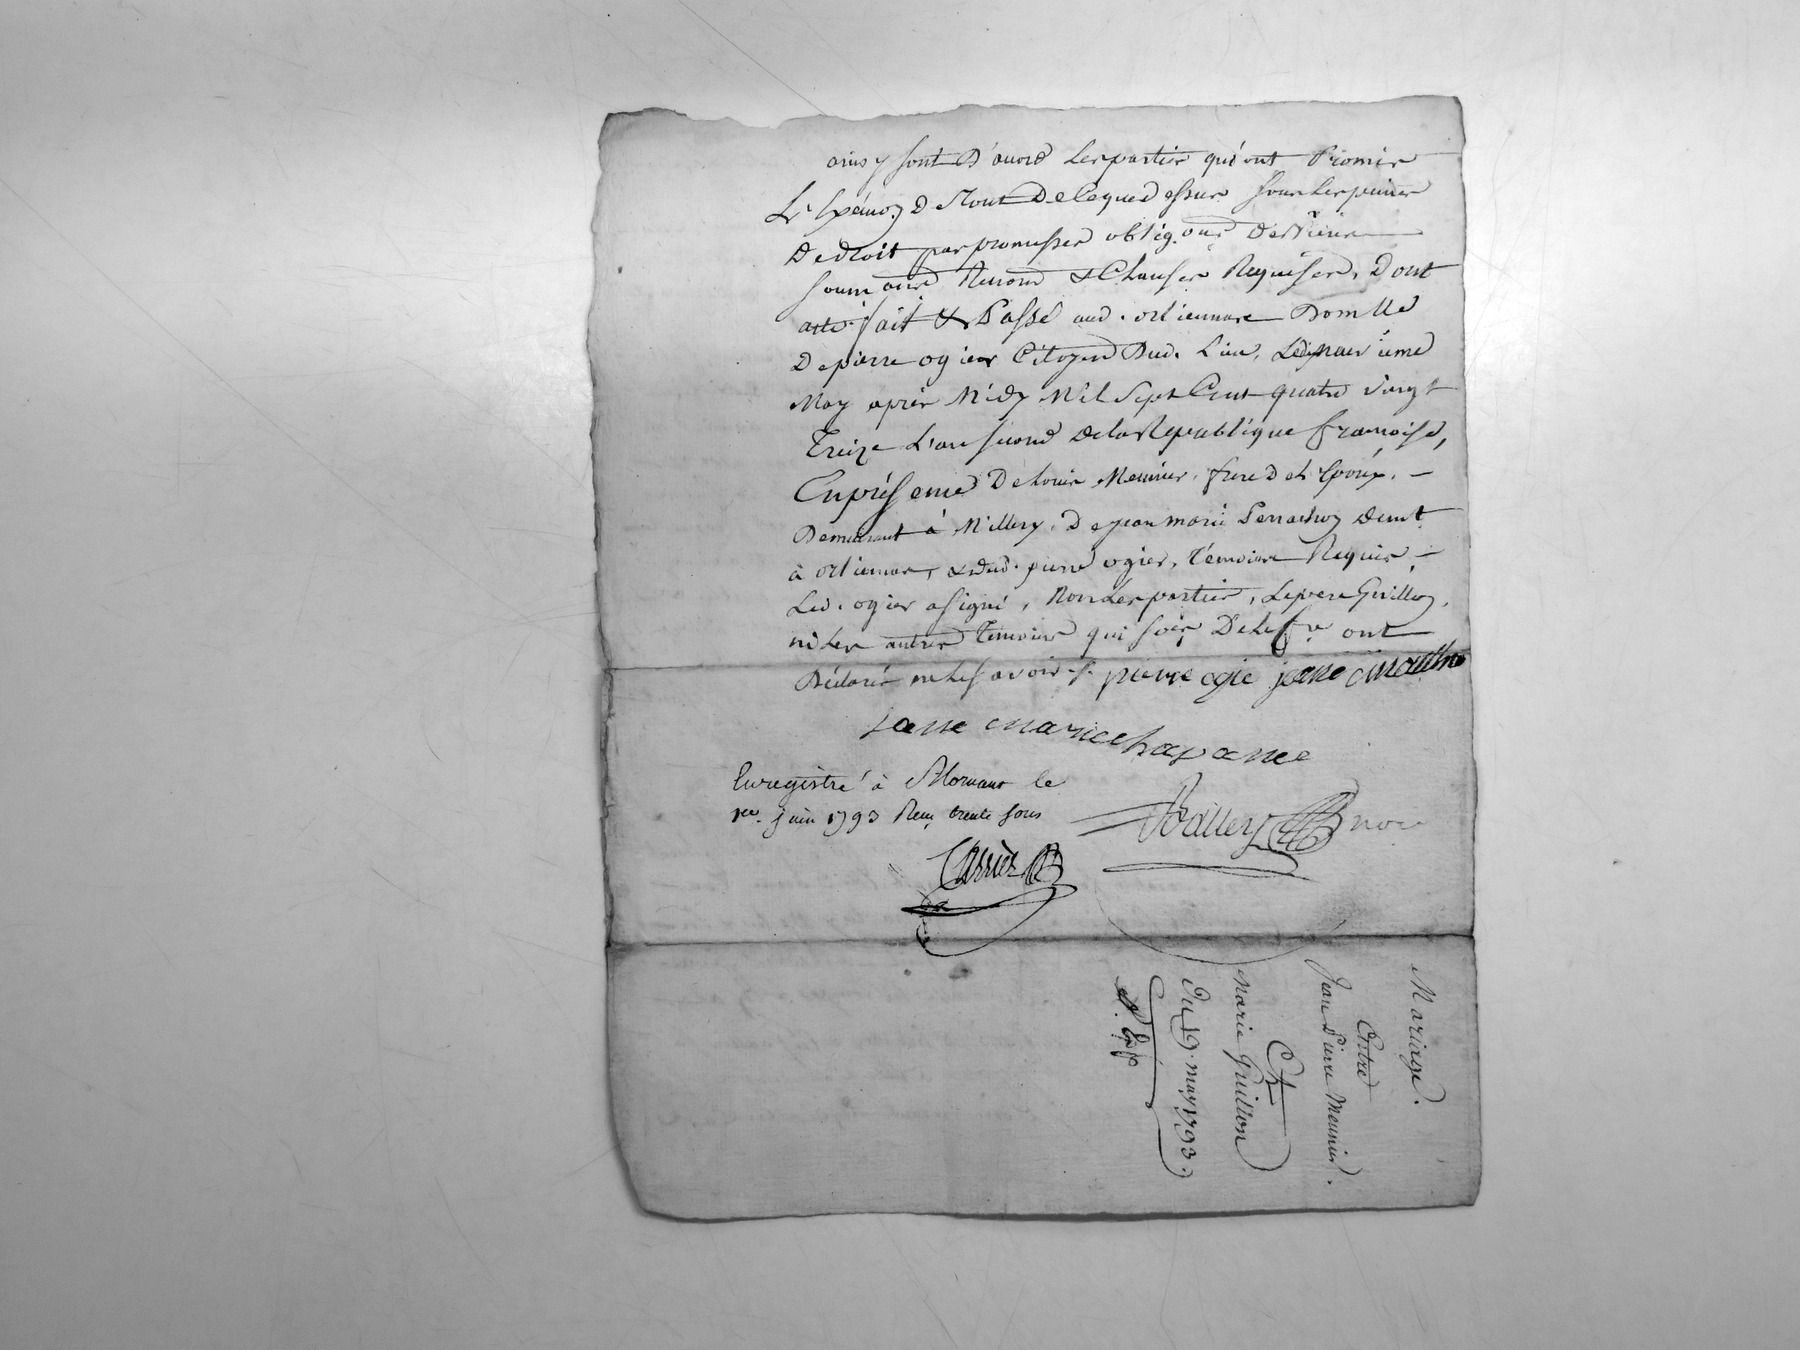 ainsy sont D'accord Les parties qui ont Promis
L'Exécu.on De Tout De Ce que Dessus sous Les peines
De droit par promesses oblig.ons
soumons Renons & Clauses Requises, Dont
acte fait & Passé aud. orliennas Domlle
De pierre ogier Citoyen Dud. Lieu, Le dixneuvieme
May après Midy Mil Sept Cent quatre vingt
Treize L'an second De la Republique françoise,
En présence De Louis Meunier, frere De L'Epoux, 
Demeurant à Millery, De jean marie Perrachon Demt
à orlienas, & dud. pierre ogier, Témoins Requis
Led. ogier a signé, Non Les parties, Le pere Guillon,
ni Les autres Temoins qui soir De Le fre ont
Déclaré ne Le savoir ./. pierre ogie jeane
jeane marie chapanee
Enregistré à Mornant le
1er. juin 1793 Reçu trente sous
Balley nore
Carrier
Mariage.
Entre
Jean Pierre Meunier.
Et
Marie Guillon
Du 19. may 1793.
Exp.